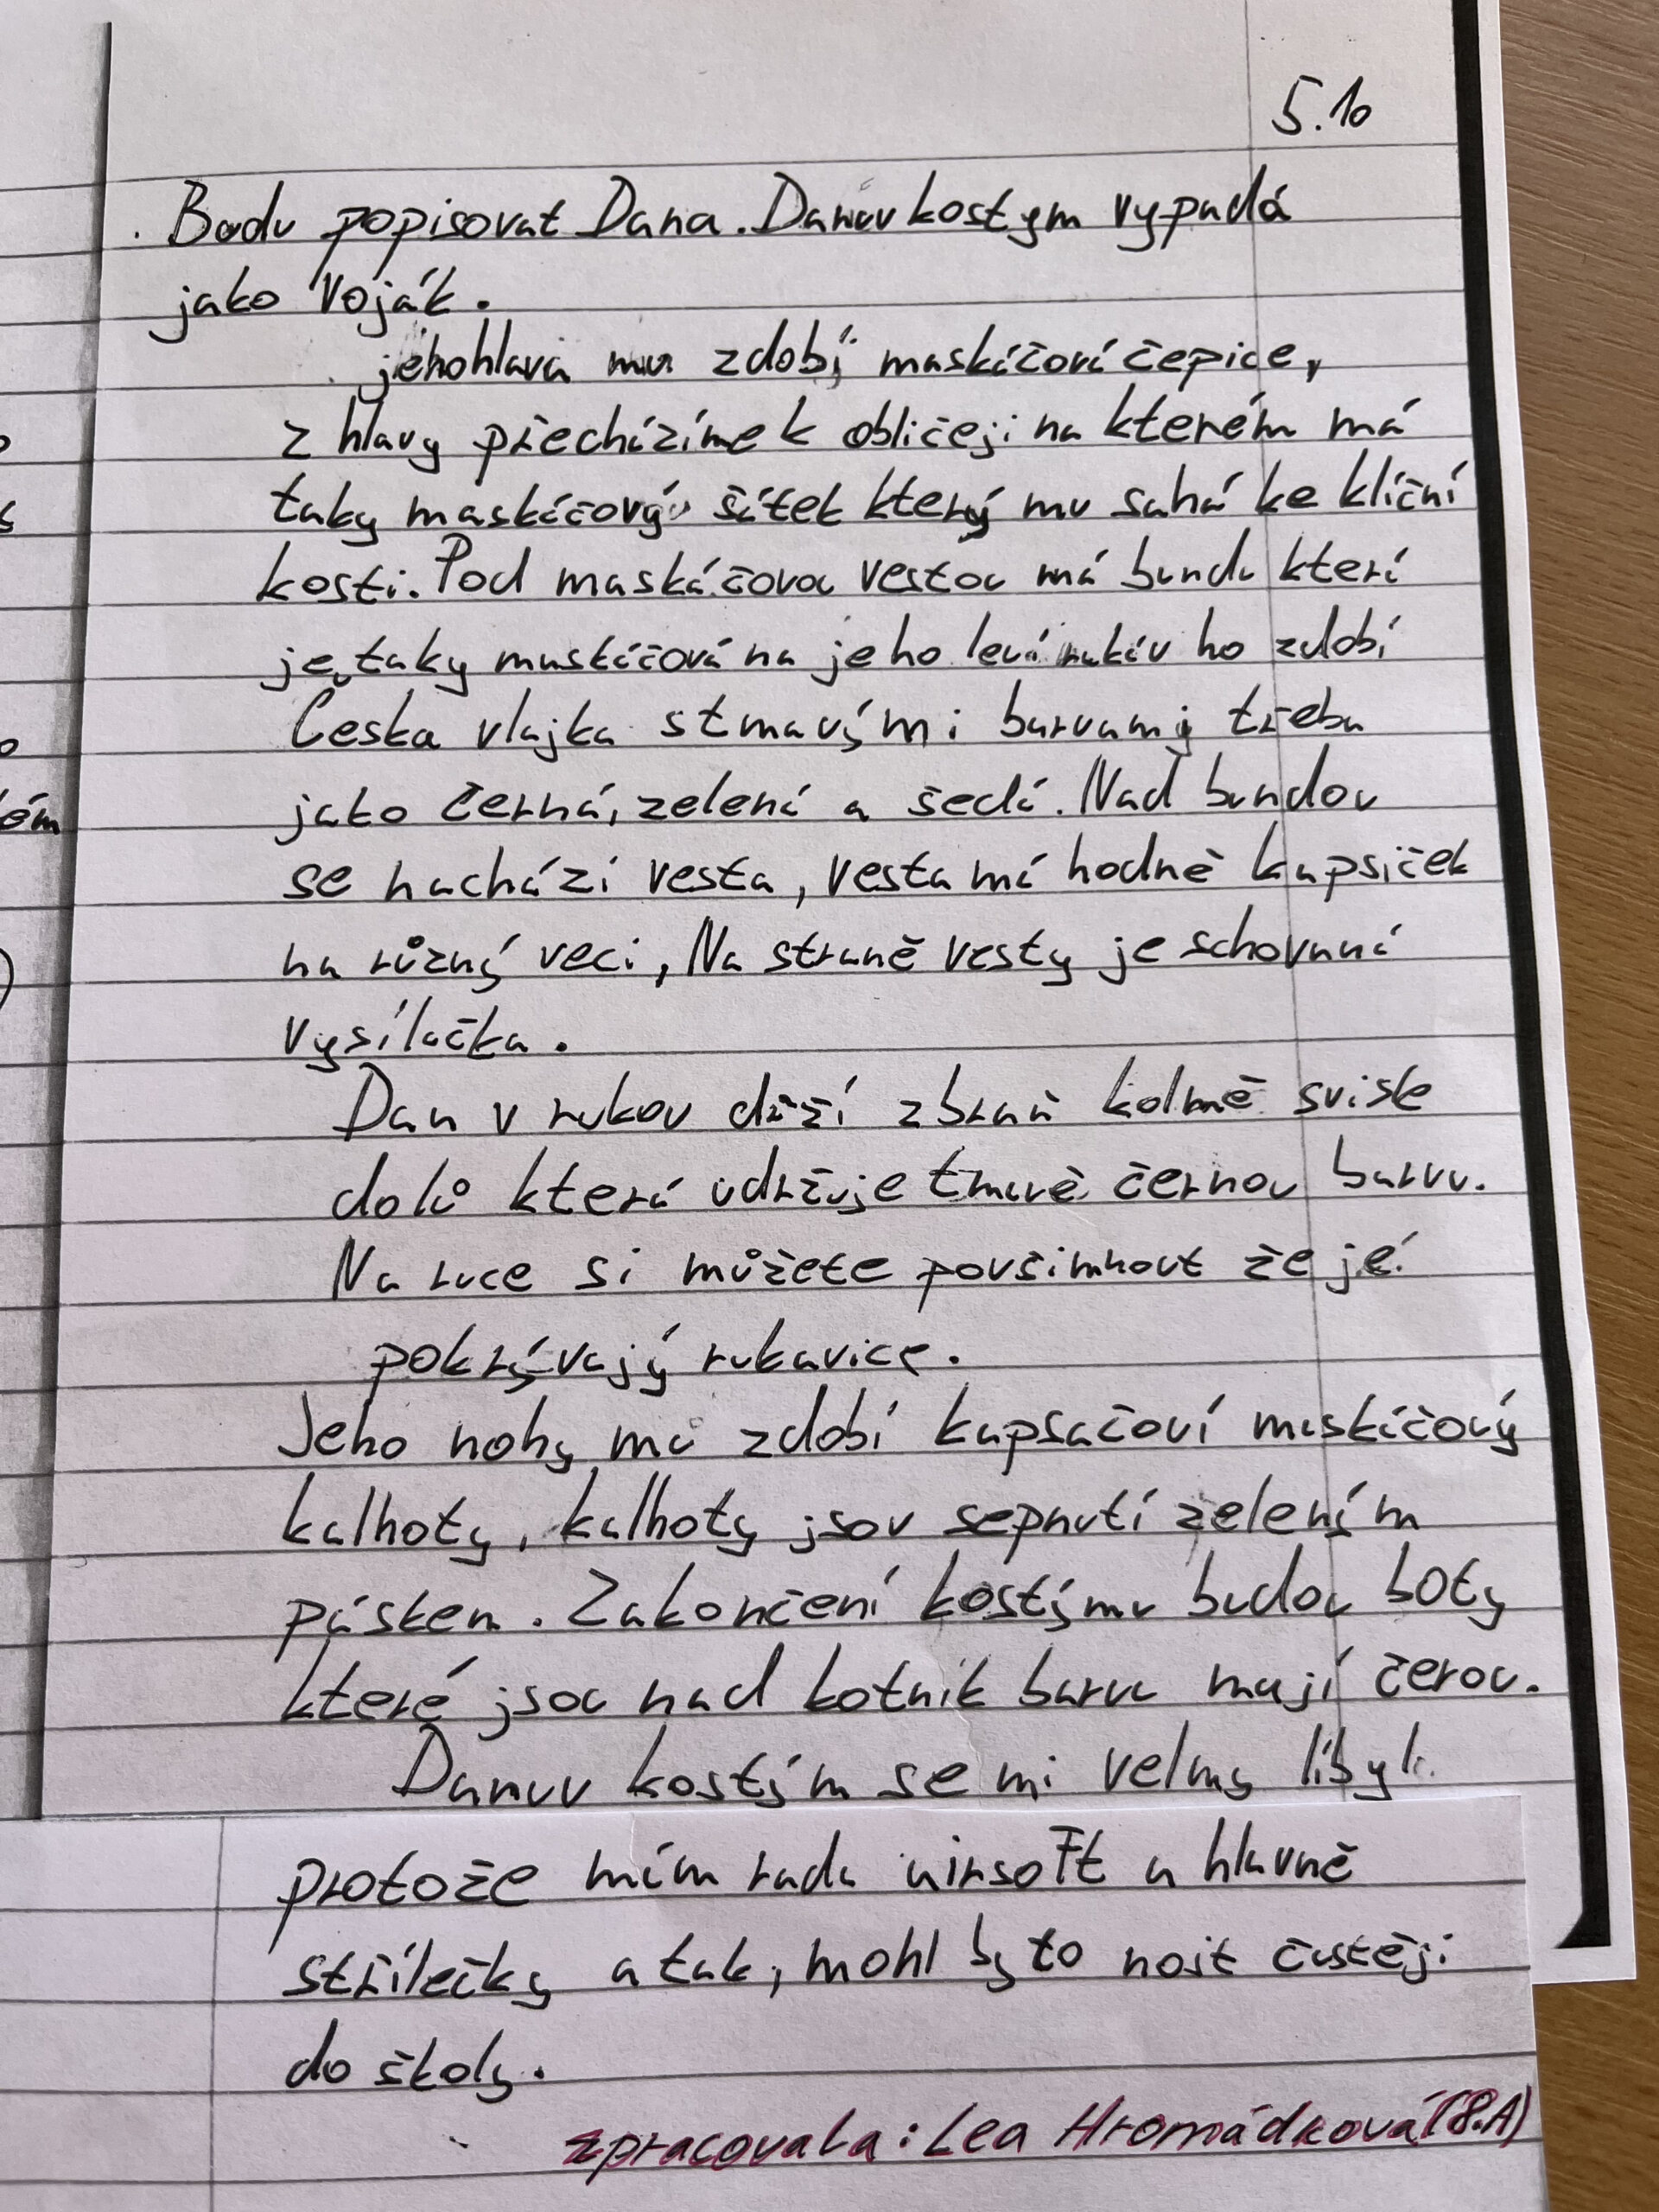 5.10
Budu popisovat Dana. Danuv kostym vypadá
jako Voják.
jeho hlava mu zdobí maskáčová čepice,
z hlavy přecházíme k obličeji na kterém má
taky maskáčový šátek který mu sahá ke klíční
kosti. Pod maskáčovou vestou má bundu která
je taky maskáčová na jeho levá rukáv ho zdobí
Česka vlajka s tmavými barvamy třeba
jako černá, zelená a šedá. Nad bundou
se nachází vesta, vesta má hodně kapsiček
na různý veci, Na straně vesty je schovaná
vysílačka.
Dan v rukou drží zbraň kolmě svisle
dolů která udržuje tmavě černou barvu.
Na ruce si můžete povšimnout že je
pokrývají rukavice.
Jeho nohy mu zdobí kapsačoví maskáčový
kalhoty, kalhoty jsou sepnutí zeleným
páskem. Zakončení kostýmu budou boty
které jsou nad kotník barvu mají čerou.
Danuv kostým se mi velmy líbyl
protože mám rada airsoft a hlavně
střílečky a tak, mohl by to nosit častěji
do školy.
zpracovala: Lea Hromádková (8.A)
ém